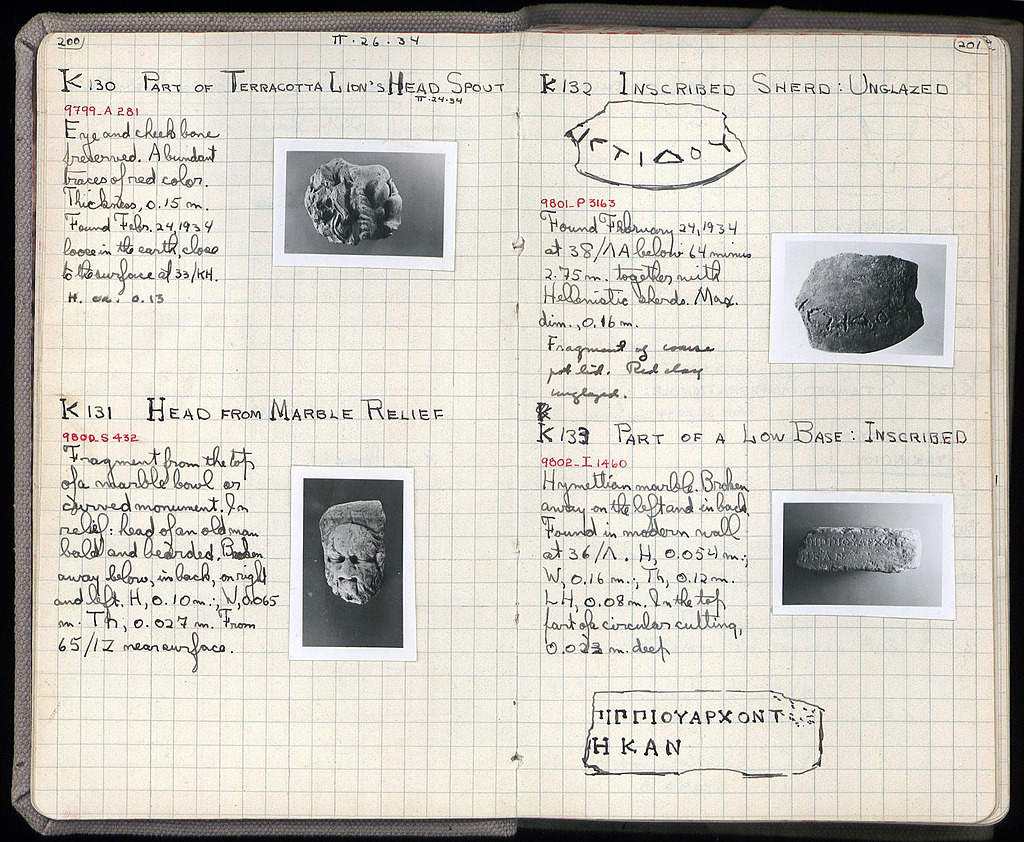 200
II·26·34
K 130 PART OF TERRACOTTA LION'S HEAD SPOUT
II·24·34
9799_A 281
Eye and cheek bone
preserved. Abundant
traces of red color.
Thickness, 0.15 m.
Found Febr. 24, 1934
loose in the earth, close
to the surface at 33/ΚΗ.
H. ca. 0.13
K 131 HEAD FROM MARBLE RELIEF
9800_S 432
Fragment from the top
of a marble bowl or
curved monument. In
relief: head of an old man
bald and bearded. Broken
away below, in back, on right
and left. H, 0.10 m.; W, 0.065
m. Th, 0.027 m. From
65/ΙΖ near surface.
201
K 132 INSCRIBED SHERD: UNGLAZED
ΤΙΔΟΥ
9801_P 3163
Found February 24, 1934
at 38/ΛΑ below 64 minus
2.75 m. together with
Hellenistic sherds. Max.
dim., 0.16 m.
Fragment of coarse
pot lid. Red clay
unglazed.
K 133 PART OF A LOW BASE: INSCRIBED
9802_I 1460
Hymettian marble. Broken
away on the left and in back.
Found in modern wall
at 36/Λ. H, 0.054 m.;
W, 0.16 m.; Th, 0.12 m.
LH, 0.08 m. In the top
part of a circular cutting,
0.023 m. deep
ΙΠΠΙΟΥΑΡΧΟΝΤ
ΗΚΑΝ